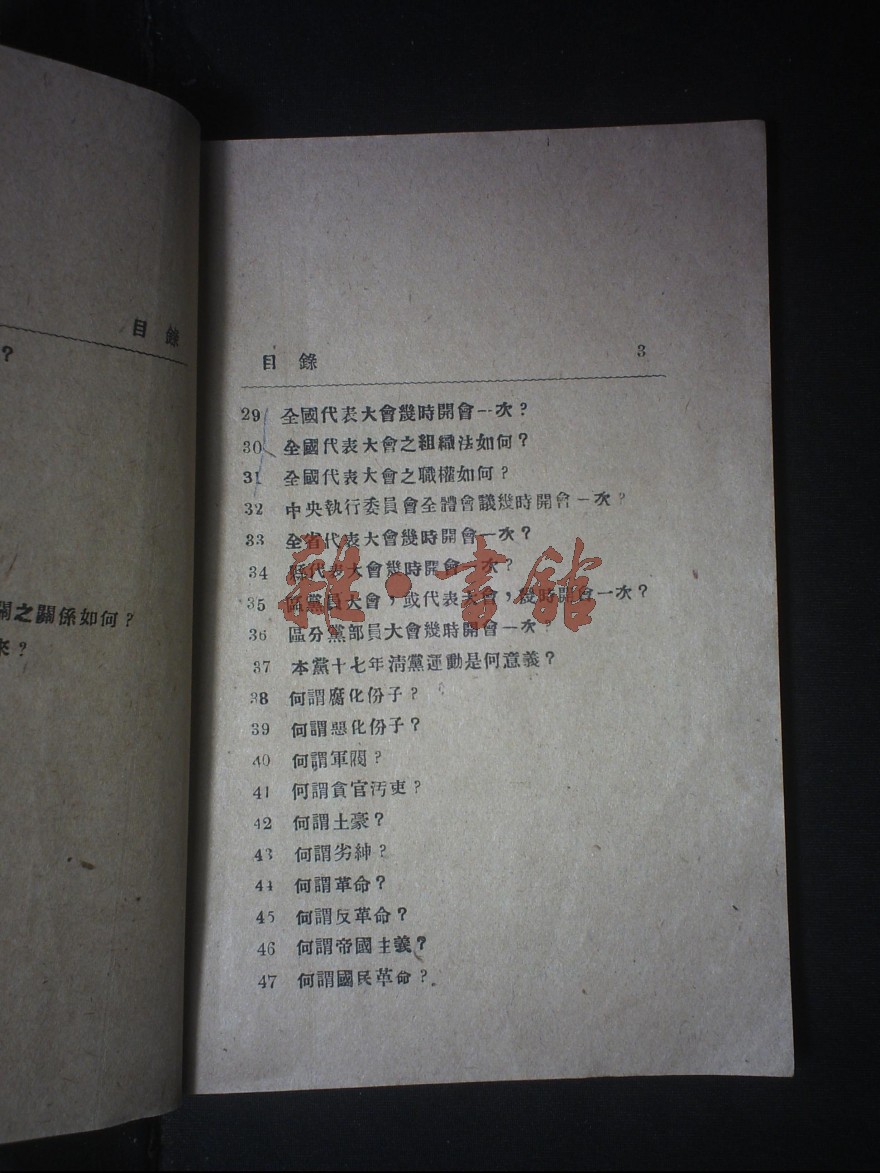 目錄
？
關之關係如何？
來？
目錄 3
29 全國代表大會幾時開會一次？
30 全國代表大會之組織法如何？
31 全國代表大會之職權如何？
32 中央執行委員會全體會議幾時開會一次？
33 全省代表大會幾時開會一次？
34 縣代表大會幾時開會一次？
35 區黨員大會，或代表大會，幾時開會一次？
36 區分黨部員大會幾時開會一次？
37 本黨十七年清黨運動是何意義？
38 何謂腐化份子？
39 何謂惡化份子？
40 何謂軍閥？
41 何謂貪官汚吏？
42 何謂土豪？
43 何謂劣紳？
44 何謂革命？
45 何謂反革命？
46 何謂帝國主義？
47 何謂國民革命？
雜·書館